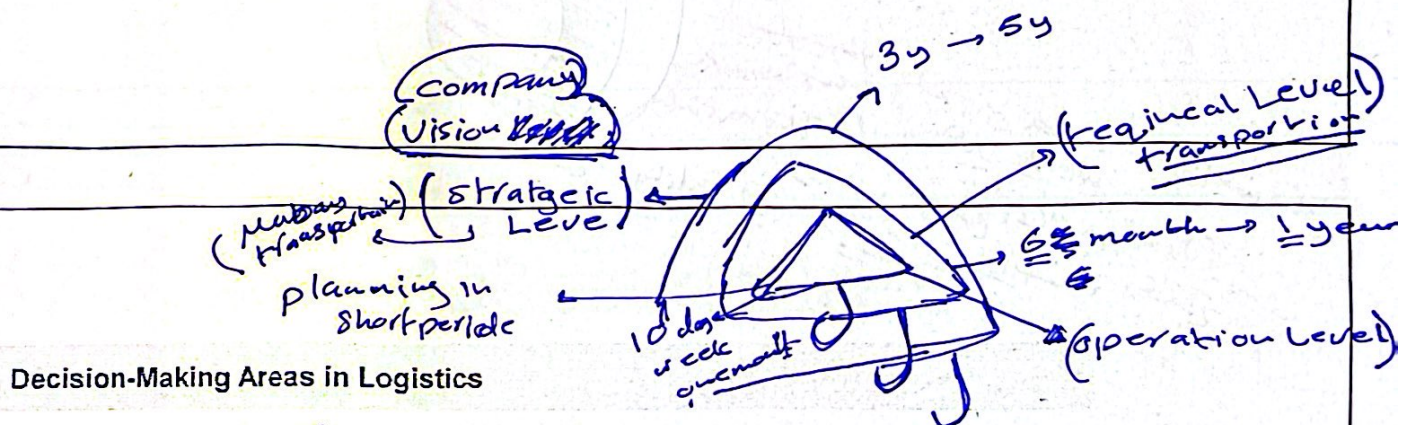 3y → 5y
(Company)
(Vision)
(reqineal Level)
transportion
(stratgeic
Leve)
6 month → 1 year
planning in
short periode
10 day
week
onemonth
(operation Level)
Decision-Making Areas in Logistics